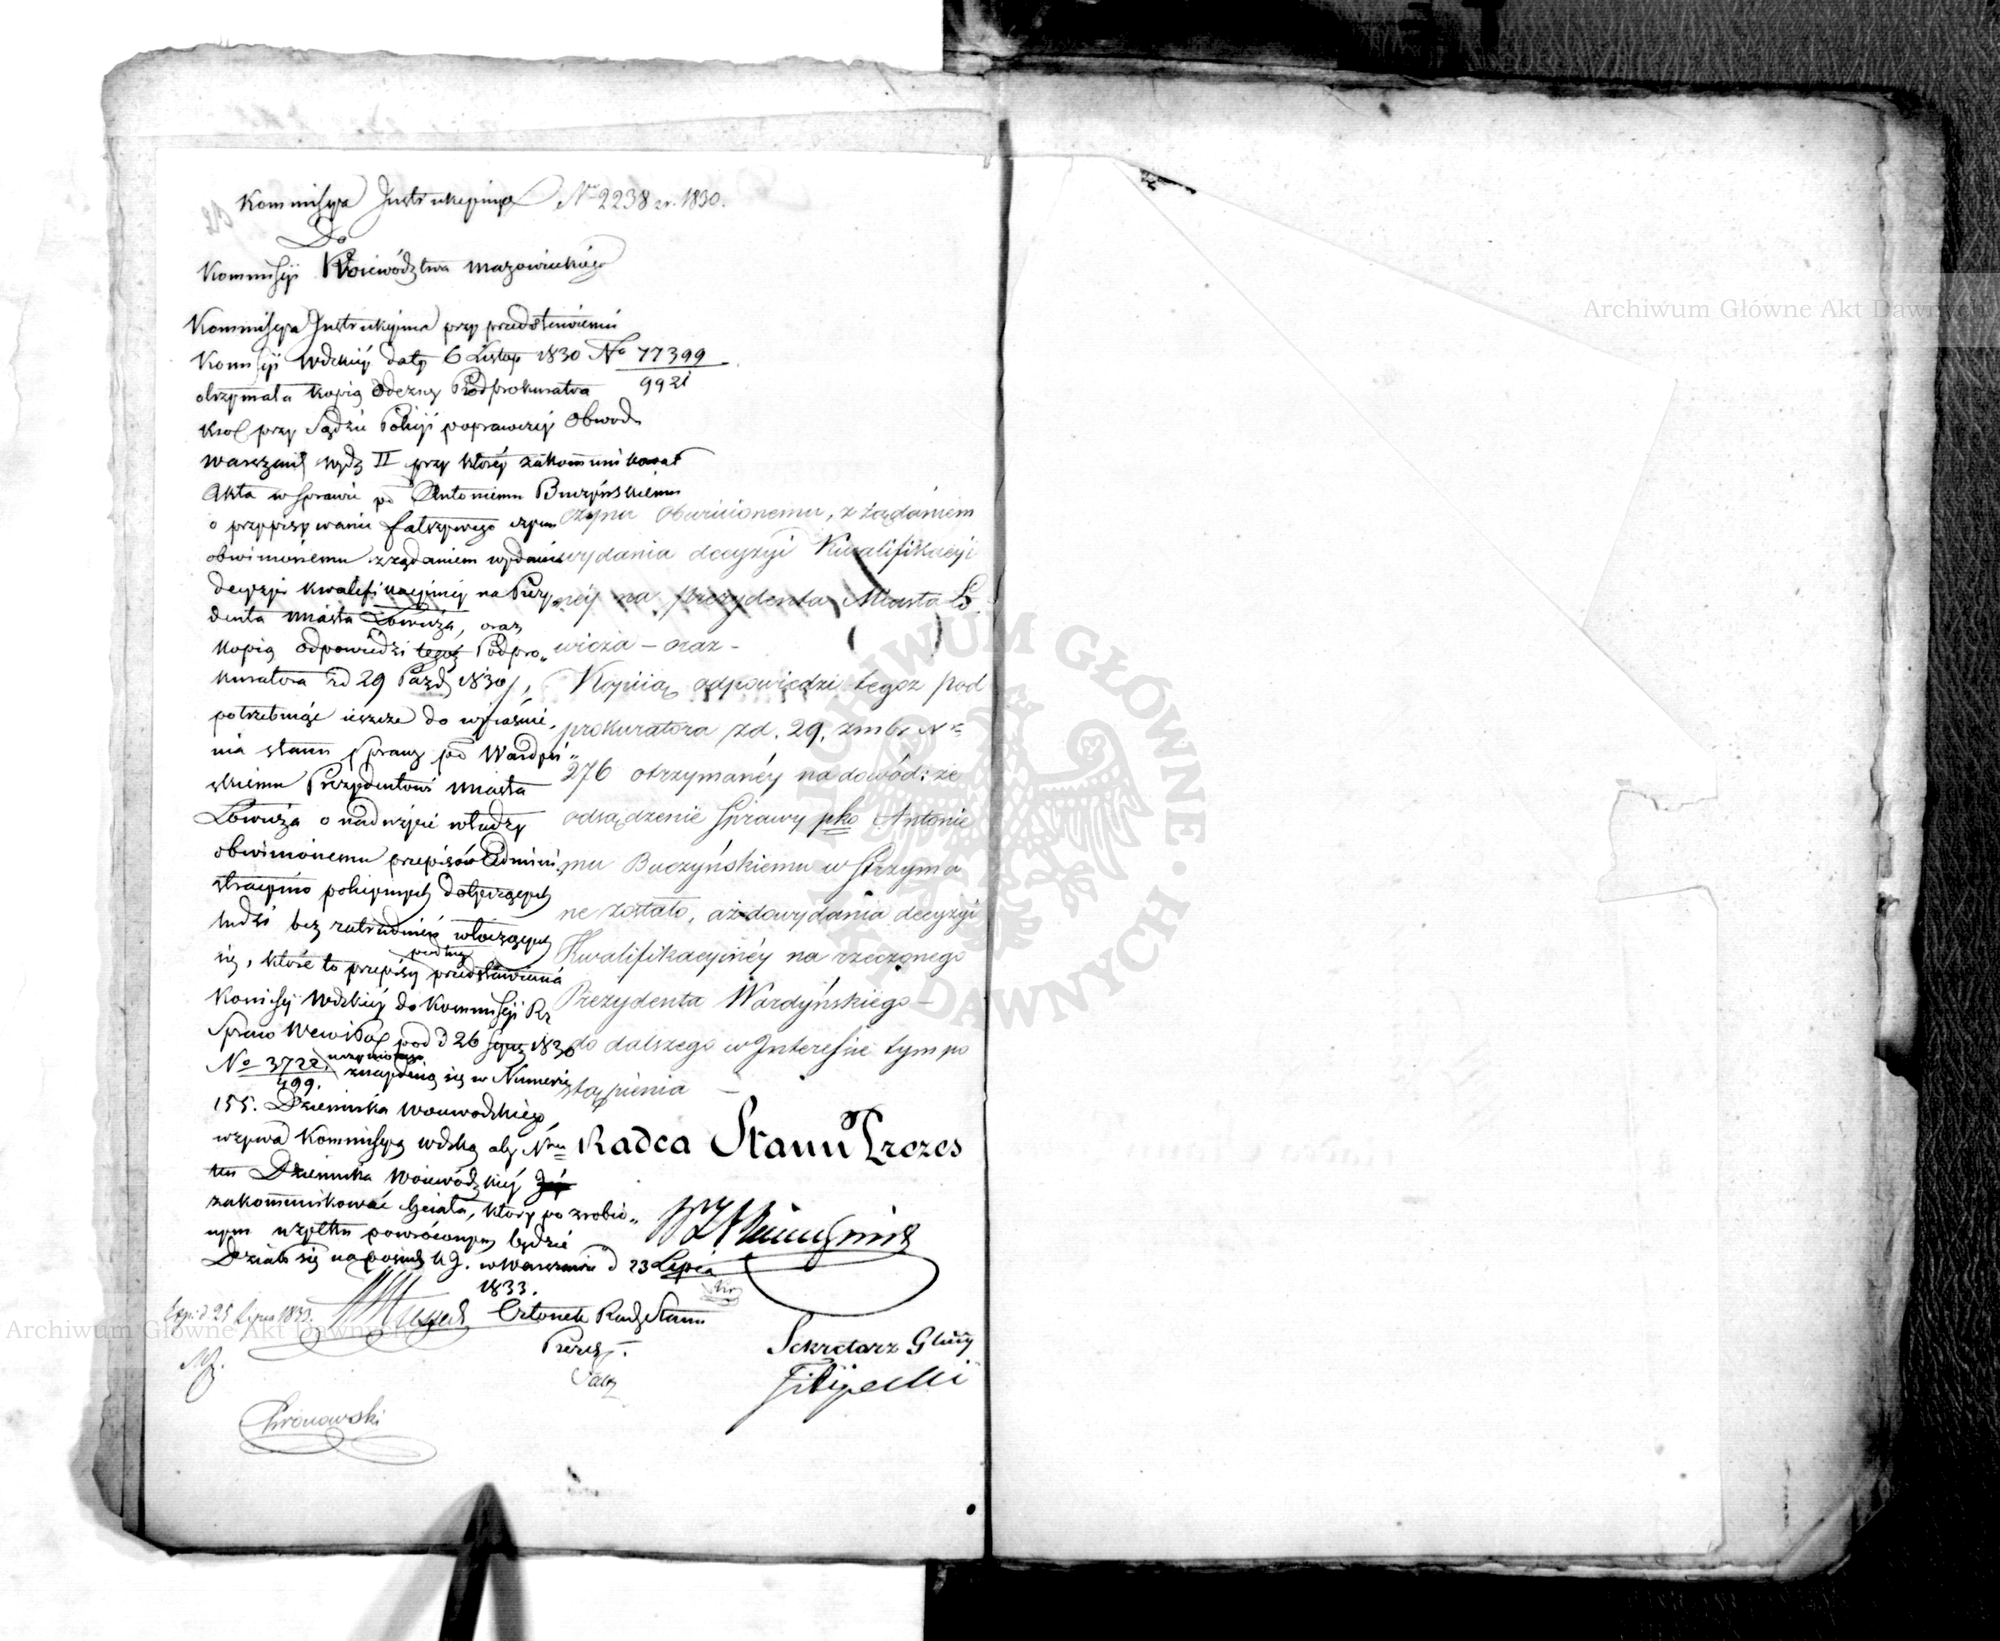 Kommissya Instrukcyina Nº 2238 zr. 1830.
Do
Kommissyi Województwa Mazowieckiego
Kommissya Instrukcyina przy przedstawieniu
Komissyi Wdzkiéy daty 6 Listop 1830 Nº 77399
9921
otrzymała kopią Odezwy Podprokuratora
Krol przy Sądzie Policyi poprawczéy Obwod
Warszaws wydz II przy któréy zakommunikował
Akta w sprawie po Antoniemu Buczyńskiemu
o przypisywanie fałszywego czynu
obwinionemu z rządaniem wydania
decyzyi kwalifikacyinéy na Prezy
denta miasta Łowicza, oraz
kopią odpowiedzi tegoż Podpro„
kuratora zd 29 Paźd 1830,
potrzebuje ieszcze do wyiaśnie„
nia stanu sprawy po Wardyń„
skiemu Prezydentowi miasta
Łowicza o nadużycie władzy
obwinionemu przepisów Admini„
stracyino policyinych dotyczących
ludzi bez zatrudnienia włóczących
się, które to przepisy podług przedstawienia
Komissyi Wdzkiéy do Kommissyi Rz
Spraw Wew i Pol pod d 26 1830
Nº 3722
499.
uczynionego znayduią się w Numerze
155. Dziennika Woiewodzkiego
wzywa Kommissyą wdzką aby Nr
ten Dziennika Woiewódzkiéy
zakommunikować chciała, który po zrobio„
nym użytku powróconym będzie
Działo się na posied. K. J. w Warszawie d 23 Lipca
1833.
Exp: d 25 Lipca 1833.
Członek Radz Stanu
Prezes.
Chronowski
czynu obwinionemu, z żądaniem
wydania decyzyi Kwalifikacyi
néy na Prezydenta Miasta Ło
wicza – oraz –
Kopiią odpowiedzi tegoż Pod
prokuratora zd. 29. zmbr Nr
276 otrzymanéy na dowód: że
odsądzenie Sprawy pko Antonie
mu Buczyńskiemu wstrzyma
ne zostało, aż do wydania decyzyi
Kwalifikacyinéy na rzeczonego
Prezydenta Wardyńskiego –
do dalszego w Interessie tym po
stąpienia –
Radca Stanu Prezes
Sekretarz Głny
Filipecki
Archiwum Główne Akt Dawnych
Archiwum Główne Akt Dawnych
ARCHIWUM GŁÓWNE · AKT DAWNYCH ·